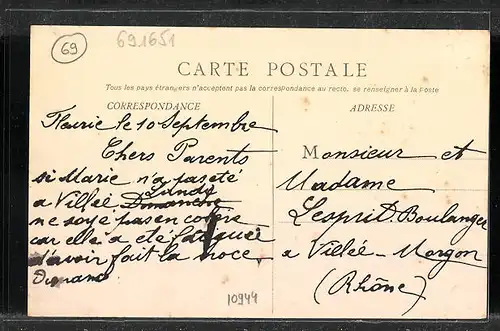 69
691651
CARTE POSTALE
Tous les pays étrangers n'acceptent pas la correspondance au recto. se renseigner à la Poste
CORRESPONDANCE
ADRESSE
Fleurie le 10 Septembre
Chers Parents
si Marie n'a pas eté
a Villée Dimanche
Lundi
ne soyé pas en colère
car elle a eté
d'avoir fait la noce
Dimanc
Monsieur et
Madame
Lesprit Boulanger
a Villée-Morgon
(Rhône)
10944